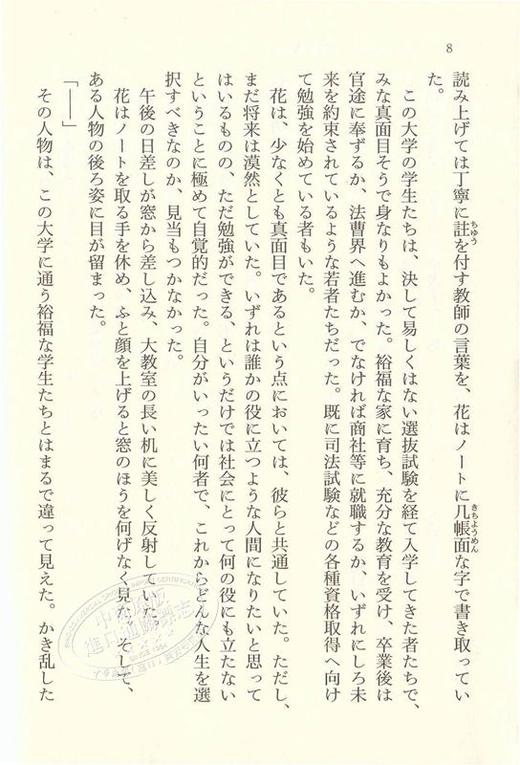 8
読み上げては丁寧に註を付す教師の言葉を、花はノートに几帳面な字で書き取ってい
ちゆう
きちようめん
た。
この大学の学生たちは、決して易しくはない選抜試験を経て入学してきた者たちで、
みな真面目そうで身なりもよかった。裕福な家に育ち、充分な教育を受け、卒業後は
官途に奉ずるか、法曹界へ進むか、でなければ商社等に就職するか、いずれにしろ未
来を約束されているような若者たちだった。既に司法試験などの各種資格取得へ向け
て勉強を始めている者もいた。
花は、少なくとも真面目であるという点においては、彼らと共通していた。ただし、
まだ将来は漠然としていた。いずれは誰かの役に立つような人間になりたいと思って
はいるものの、ただ勉強ができる、というだけでは社会にとって何の役にも立たない
ということに極めて自覚的だった。自分がいったい何者で、これからどんな人生を選
択すべきなのか、見当もつかなかった。
午後の日差しが窓から差し込み、大教室の長い机に美しく反射していた。
花はノートを取る手を休め、ふと顔を上げると窓のほうを何げなく見た。そして、
ある人物の後ろ姿に目が留まった。
「――」
その人物は、この大学に通う裕福な学生たちとはまるで違って見えた。かき乱した